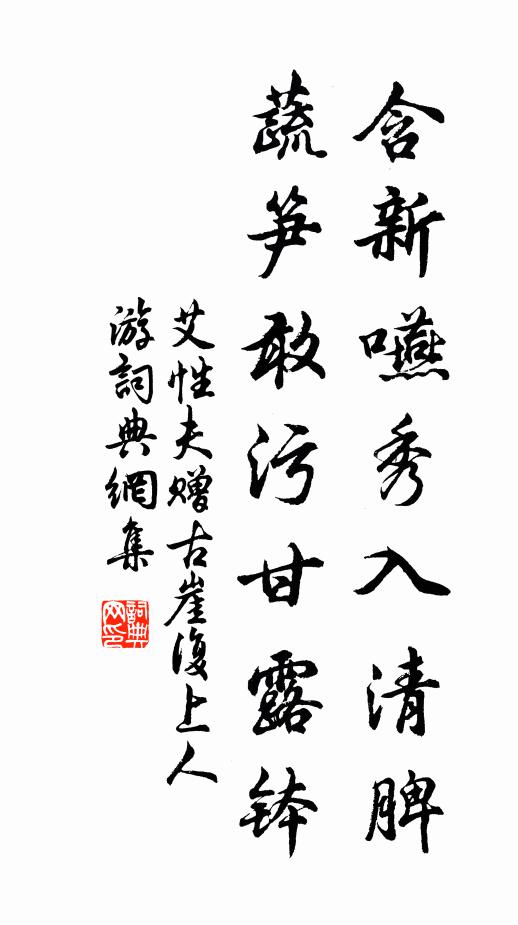 含新嚥秀入清脾
蔬笋敢污甘露鉢
艾性夫赠古崖復上人
游詞典網集
詞典网印